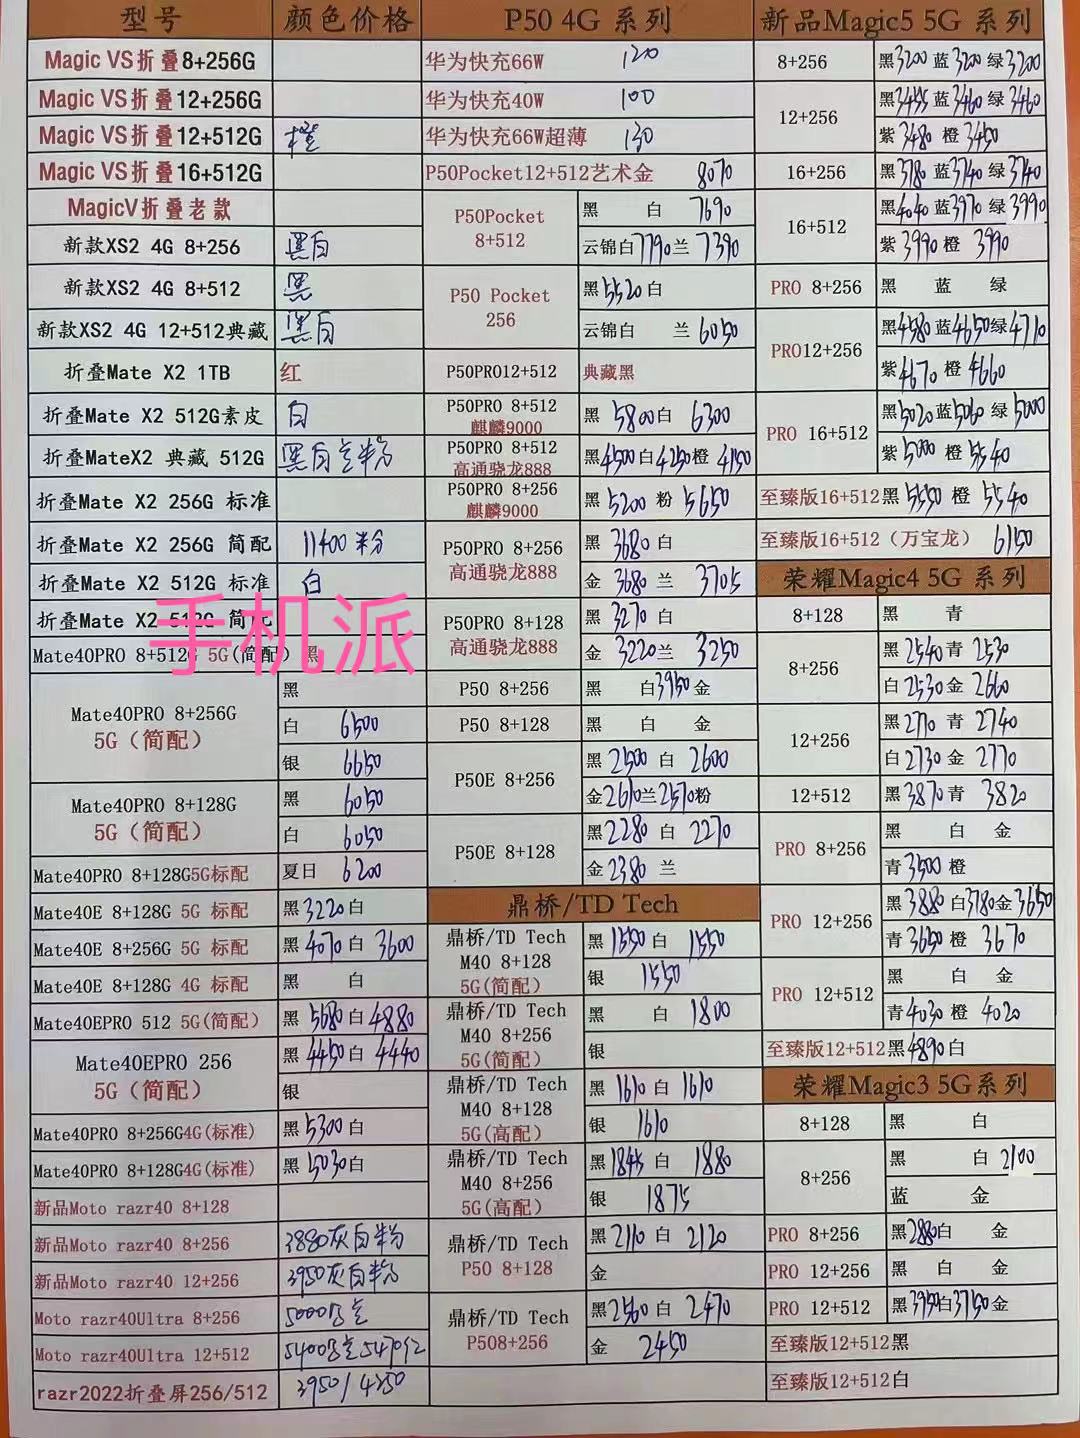 型号 颜色价格
Magic VS折叠8+256G
Magic VS折叠12+256G
Magic VS折叠12+512G 橙
Magic VS折叠16+512G
MagicV折叠老款
新款XS2 4G 8+256 黑白
新款XS2 4G 8+512 黑
新款XS2 4G 12+512典藏 黑白
折叠Mate X2 1TB 红
折叠Mate X2 512G素皮 白
折叠MateX2 典藏 512G 黑白金粉
折叠Mate X2 256G 标准
折叠Mate X2 256G 简配 11400 粉
折叠Mate X2 512G 标准 白
折叠Mate X2 512G 简配
手机派
Mate40PRO 8+512G 5G(简配) 黑
Mate40PRO 8+256G
5G（简配）
黑
白 6500
银 6650
Mate40PRO 8+128G
5G（简配）
黑 6050
白 6050
Mate40PRO 8+128G5G标配 夏日 6200
Mate40E 8+128G 5G 标配 黑3220白
Mate40E 8+256G 5G 标配 黑 4070 白 3600
Mate40E 8+128G 4G 标配 黑 白
Mate40EPRO 512 5G(简配) 黑 5680白4880
Mate40EPRO 256
5G（简配）
黑 4450白 4440
银
Mate40PRO 8+256G4G(标准) 黑5300白
Mate40PRO 8+128G4G(标准) 黑 5030白
新品Moto razr40 8+128
新品Moto razr40 8+256 3880灰白粉
新品Moto razr40 12+256 3950灰白粉
Moto razr40Ultra 8+256 5000
Moto razr40Ultra 12+512 5400 5470红
razr2022折叠屏256/512 3950/4250
P50 4G 系列
华为快充66W 120
华为快充40W 100
华为快充66W超薄 130
P50Pocket12+512艺术金 8070
P50Pocket
8+512
黑 白 7690
云锦白7790兰 7390
P50 Pocket
256
黑5520白
云锦白 兰 6050
P50PRO12+512 典藏黑
P50PRO 8+512
麒麟9000
黑 5800白 6300
P50PRO 8+512
高通骁龙888
黑4500白4250橙 4150
P50PRO 8+256
麒麟9000
黑 5200 粉 5650
P50PRO 8+256
高通骁龙888
黑 3680白
金 3680 兰 3705
P50PRO 8+128
高通骁龙888
黑 3270 白
金 3220兰 3250
P50 8+256 黑 白3950金
P50 8+128 黑 白 金
P50E 8+256
黑 2500 白 2600
金2610兰2570粉
P50E 8+128
黑2280 白 2270
金2380 兰
鼎桥/TD Tech
鼎桥/TD Tech
M40 8+128
5G(简配)
黑 1550白 1550
银 1550
鼎桥/TD Tech
M40 8+256
5G(简配)
黑 白 1800
银
鼎桥/TD Tech
M40 8+128
5G(高配)
黑 1610 白 1610
银 1610
鼎桥/TD Tech
M40 8+256
5G(高配)
黑1845 白 1880
银 1875
鼎桥/TD Tech
P50 8+128
黑2110 白 2120
金
鼎桥/TD Tech
P508+256
黑2560白 2470
金 2450
新品Magic5 5G 系列
8+256 黑3200 蓝3200 绿3200
12+256
黑3455 蓝3460 绿3460
紫 3480 橙 3450
16+256 黑3780 蓝3740 绿3740
16+512
黑4040 蓝3970 绿3990
紫 3990 橙 3990
PRO 8+256 黑 蓝 绿
PRO12+256
黑4580蓝4650绿4710
紫4670 橙 4660
PRO 16+512
黑5020蓝5060 绿5000
紫5000 橙 5540
至臻版16+512黑5550 橙 5540
至臻版16+512（万宝龙） 6150
荣耀Magic4 5G 系列
8+128 黑 青
8+256
黑 2540青 2530
白2530金 2660
12+256
黑2710 青 2740
白2730 金 2770
12+512 黑3870青 3820
PRO 8+256
黑 白 金
青3500橙
PRO 12+256
黑3880 白3780金3650
青3650 橙 3670
PRO 12+512
黑 白 金
青4030 橙 4020
至臻版12+512黑4890白
荣耀Magic3 5G系列
8+128 黑 白
8+256
黑 白 2100
蓝 金
PRO 8+256 黑2880白 金
PRO 12+256 黑 白 金
PRO 12+512 黑3950白3750金
至臻版12+512黑
至臻版12+512白